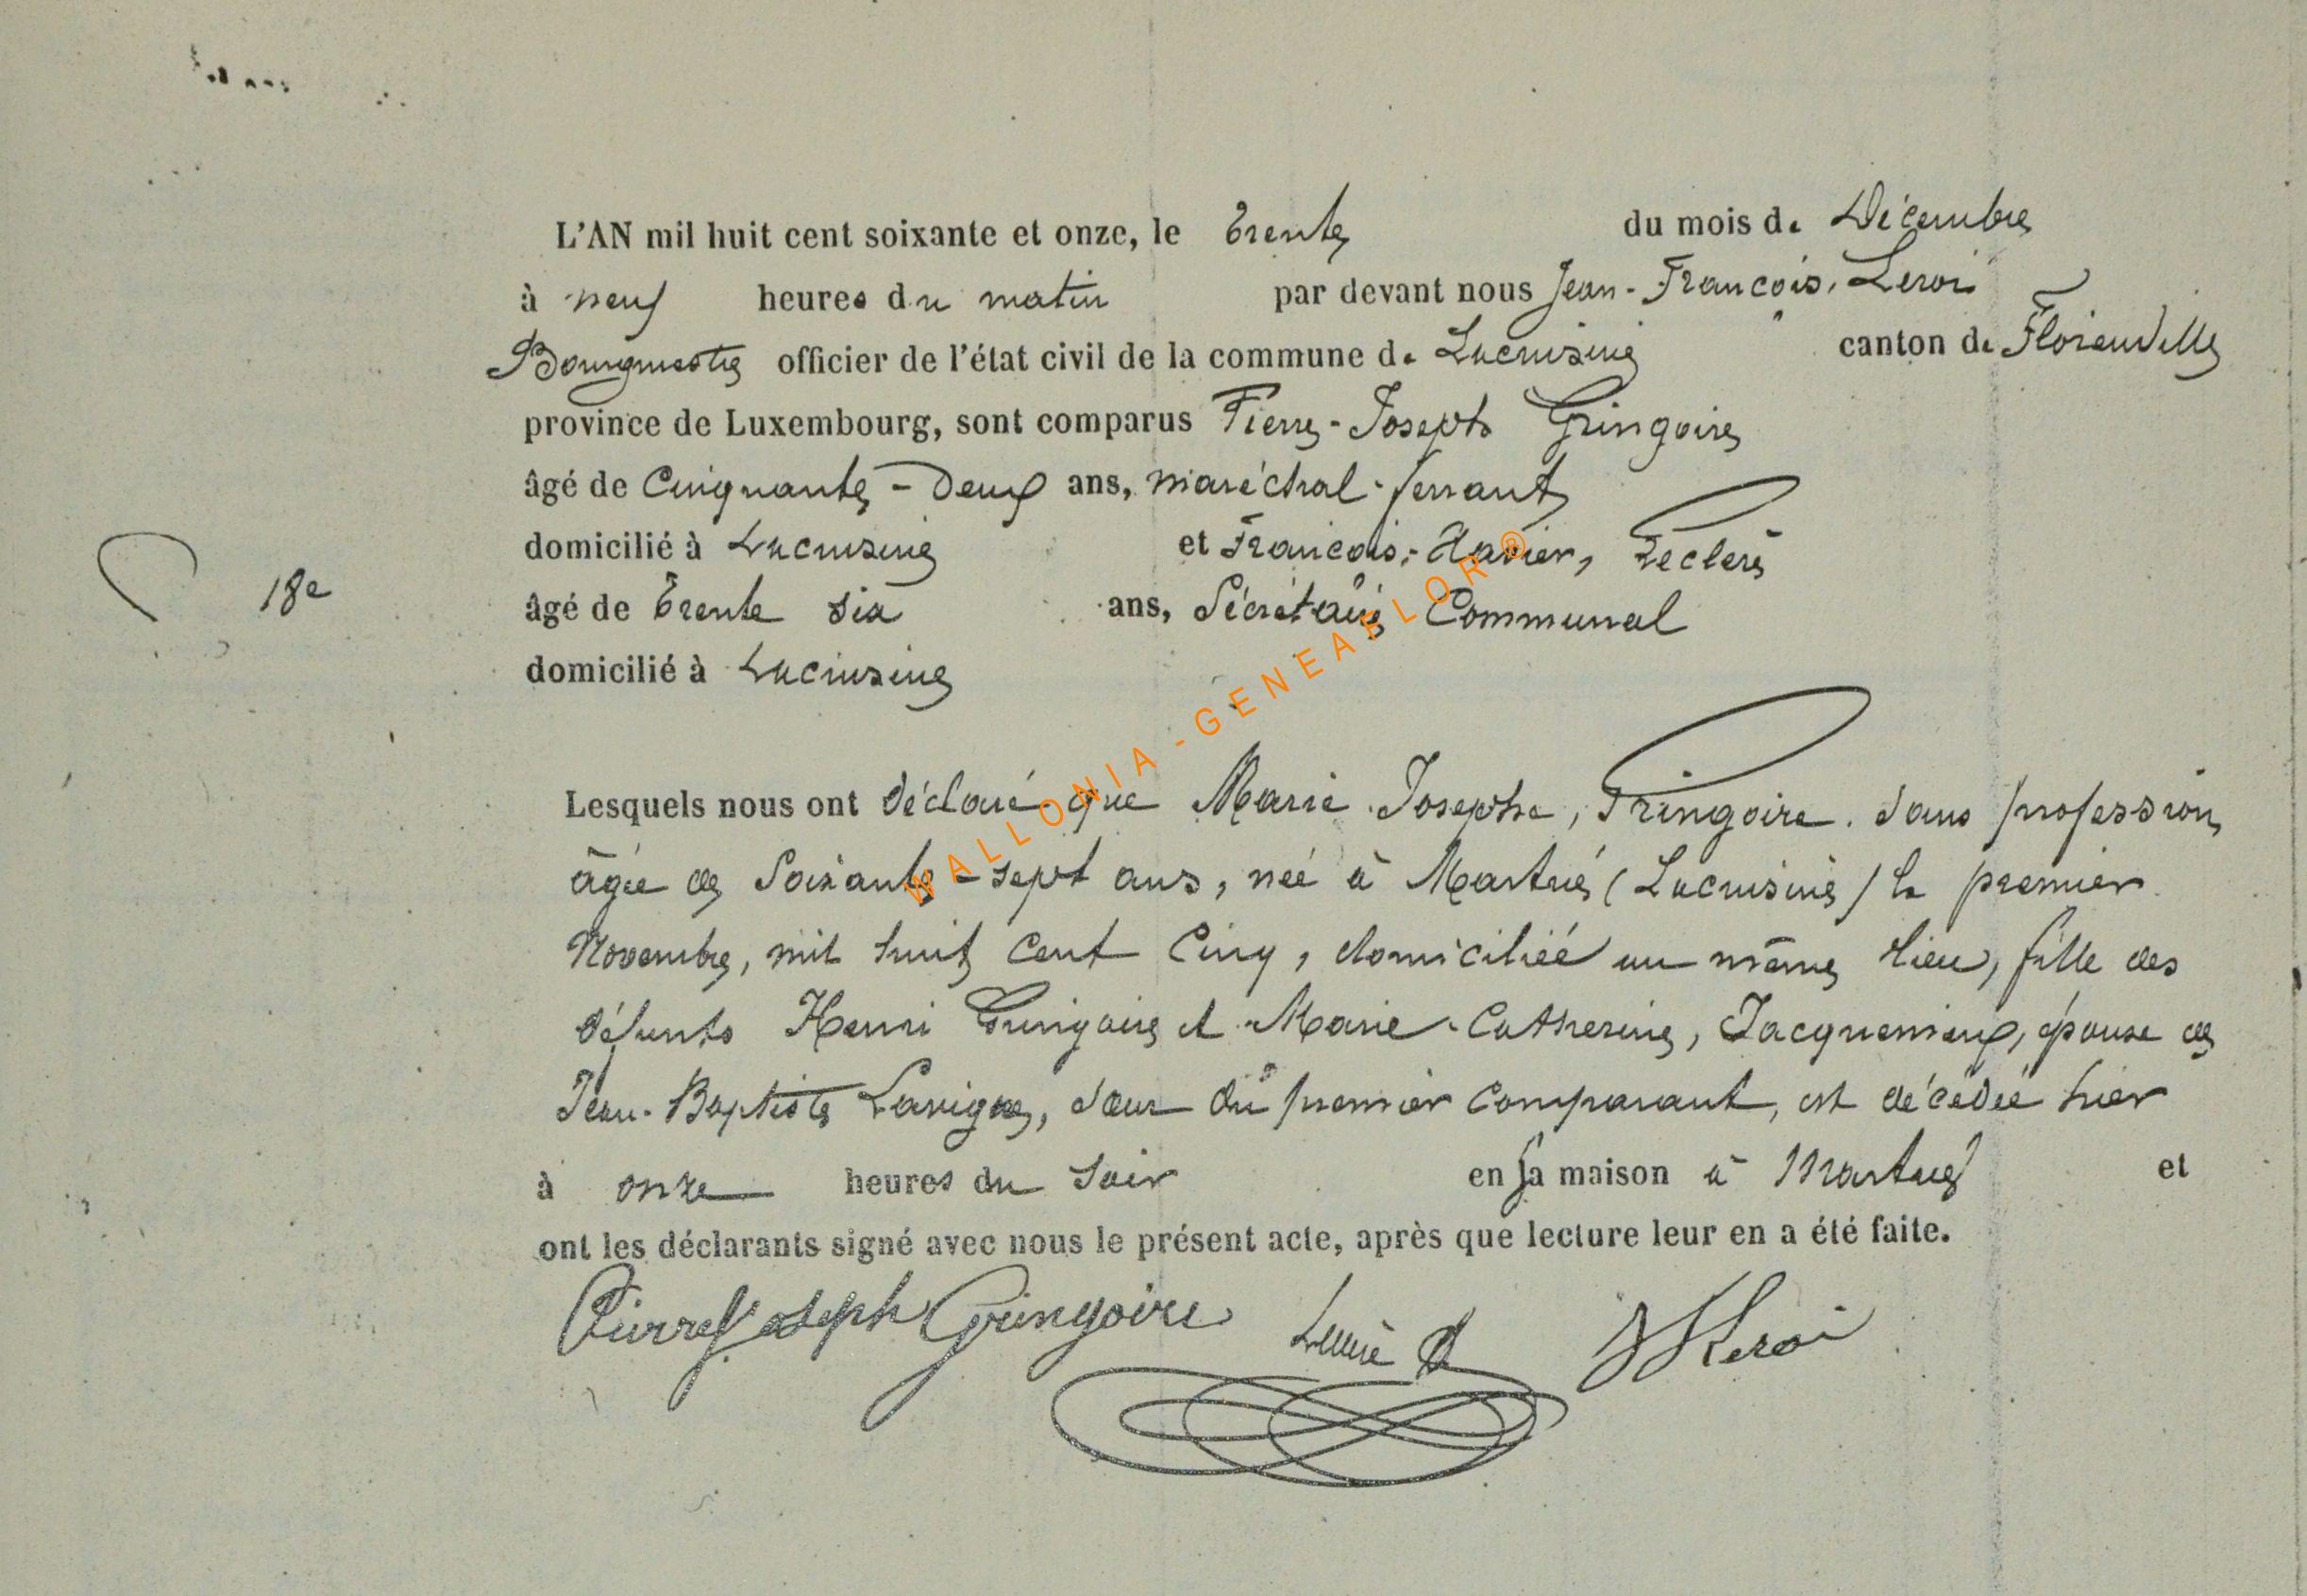 L'AN mil huit cent soixante et onze, le trente du mois de Décembre
à neuf heures du matin par devant nous Jean-François, Leroi
Bourgmestre officier de l'état civil de la commune de Lacuisine canton de Florenville
province de Luxembourg, sont comparus Pierre-Joseph Gringoire
âgé de Cinquante-Deux ans, maréchal-ferrant
domicilié à Lacuisine et François-Xavier, Leclerè
18e
âgé de trente six ans, Sécrétaire Communal
domicilié à Lacuisine
Lesquels nous ont déclaré que Marie Josephe, Gringoire. sans profession
âgée de Soixante-sept ans, née à Martué (Lacuisine) le premier
Novembre, mil huit cent cinq, domiciliée au même lieu, fille des
défunts Henri Gringoire et Marie-Catherine, Jacquemin, épouse de
Jean-Baptiste Lavigne, sœur du premier comparant, est décédée hier
à onze heures du soir en sa maison à Martué et
ont les déclarants signé avec nous le présent acte, après que lecture leur en a été faite.
Pierre Joseph Gringoire Leroi
WALLONIA-GENEAFLOR®